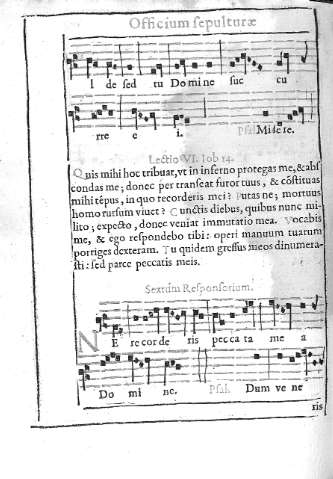 Officium sepulturæ
I de sed tu Domine suc cu
rre e i. Psal. Misere.
Lectio VI. Iob 14.
Quis mihi hoc tribuat, vt in inferno protegas me, & abs
condas me; donec per transeat furor tuus, & cōstituas
mihi tēpus, in quo recorderis mei? Putas ne; mortuus
homo rursum viuet? Cunctis diebus, quibus nunc mi-
lito; expecto, donec veniat immutatio mea. Vocabis
me, & ego respondebo tibi: operi manuum tuarum
porriges dexteram. Tu quidem gressus meos dinumera-
sti: sed parce peccatis meis.
Sextum Responsorium.
NE recorde ris pecca ta me a
Do mi ne. Psal. Dum vene
ris